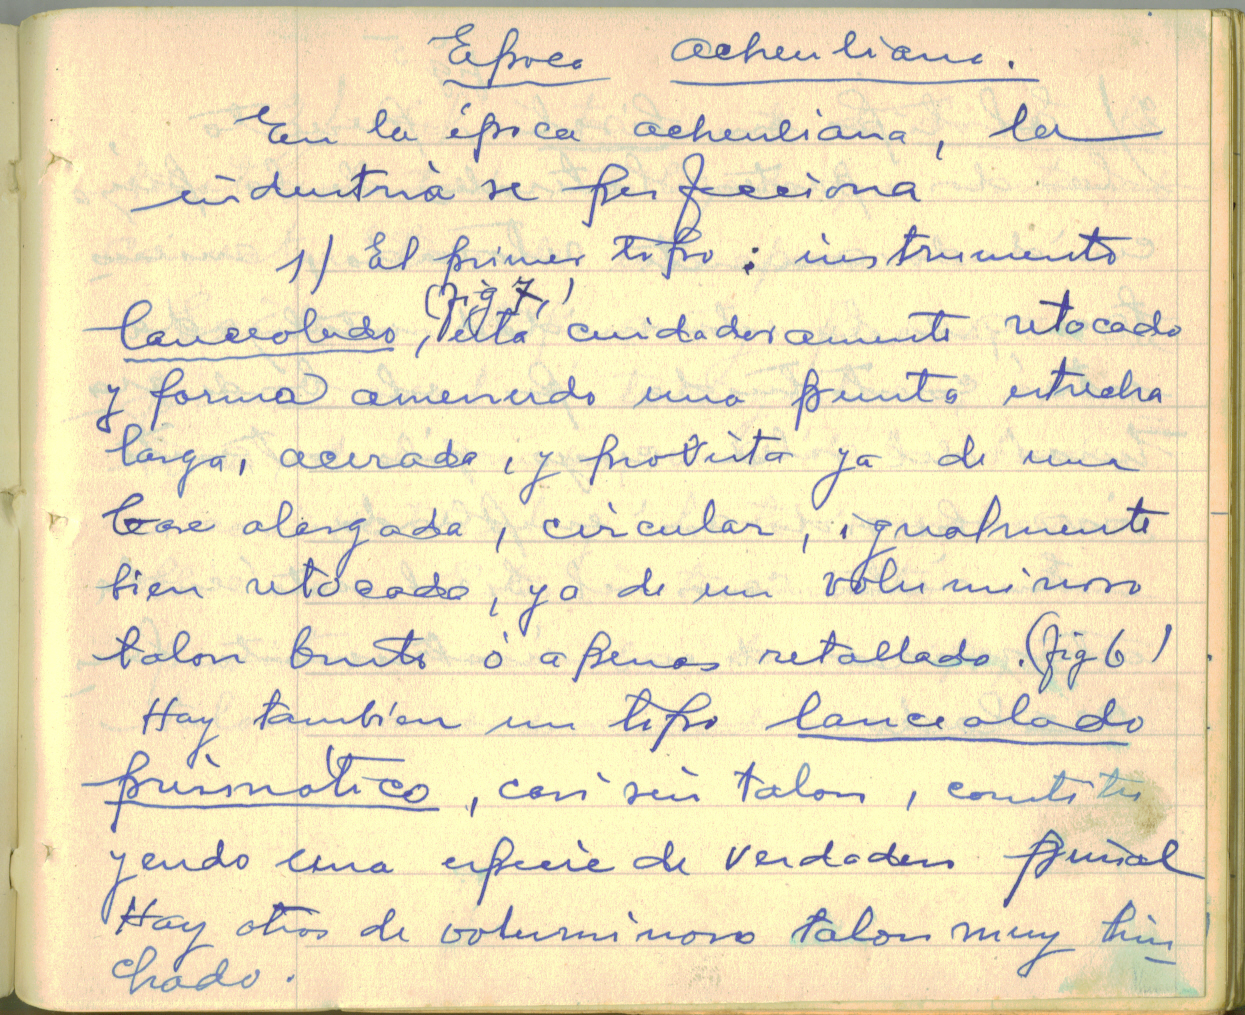 Epoca acheuliana.
En la época acheuliana, la
industria se perfecciona
1) El primer tipo : instrumento
(fig 7)
lanceolado, está cuidadosamente retocado
y forma amenudo una punta estrecha
larga, acerada, y provista ya de una
base alargada, circular, igualmente
bien retocada, ya de un voluminoso
talon bruto ó apenas retallado. (fig 6)
Hay tambien un tipo lancealado
prismático, casi sin talon, constitu
yendo una especie de verdadero puñal
Hay otros de voluminoso talon muy hin
chado.